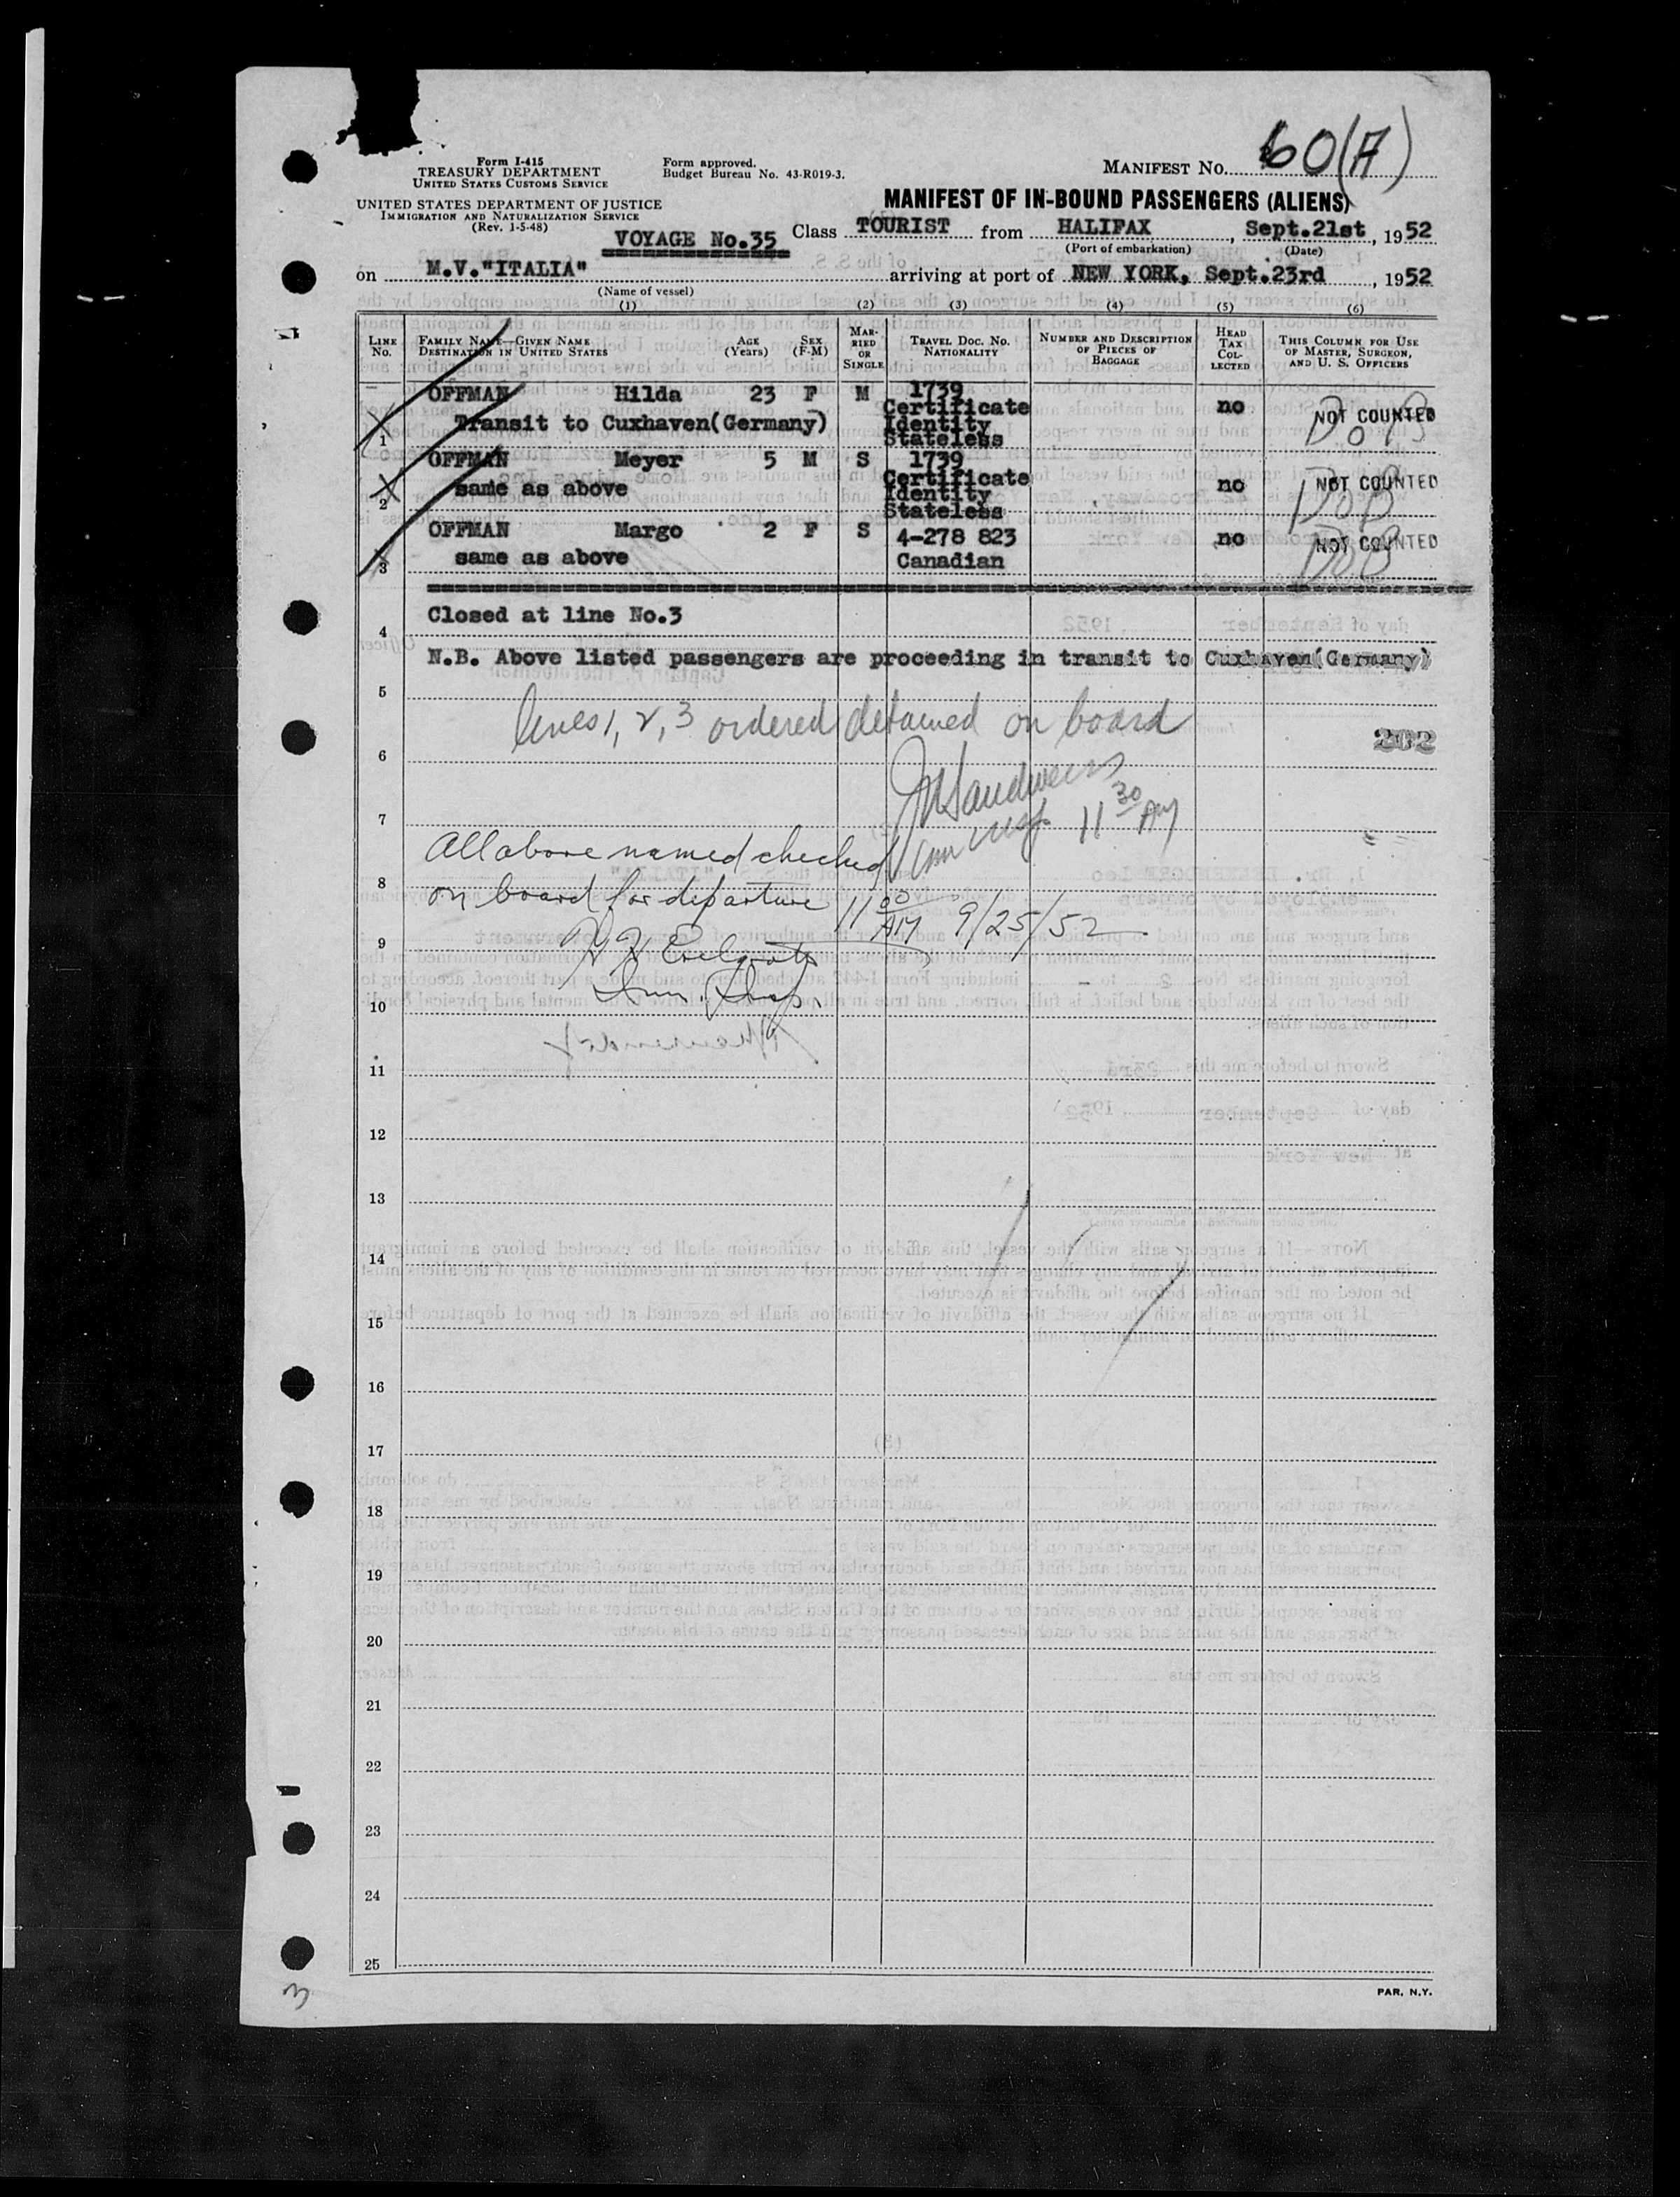 60(A)
Form I-415
TREASURY DEPARTMENT
UNITED STATES CUSTOMS SERVICE
Form approved.
Budget Bureau No. 43-R019-3.
MANIFEST NO.
UNITED STATES DEPARTMENT OF JUSTICE
IMMIGRATION AND NATURALIZATION SERVICE
(Rev. 1-5-48)
MANIFEST OF IN-BOUND PASSENGERS (ALIENS)
VOYAGE No.35 Class TOURIST from HALIFAX, Sept.21st, 1952
(Port of embarkation) (Date)
on M.V."ITALIA" arriving at port of NEW YORK, Sept.23rd, 1952
(Name of vessel)
(1) (2) (3) (4) (5) (6)
LINE No. FAMILY NAME—GIVEN NAME DESTINATION IN UNITED STATES AGE (Years) SEX (F-M) MARRIED OR SINGLE TRAVEL DOC. NO. NATIONALITY NUMBER AND DESCRIPTION OF PIECES OF BAGGAGE HEAD TAX COLLECTED THIS COLUMN FOR USE OF MASTER, SURGEON, AND U. S. OFFICERS
OFFMAN Hilda 23 F M 1739
Certificate no NOT COUNTED
1 Transit to Cuxhaven(Germany) Identity DoB
Stateless
OFFMAN Meyer 5 M S 1739
Certificate no NOT COUNTED
2 same as above Identity DoB
Stateless
OFFMAN Margo 2 F S 4-278 823 no NOT COUNTED
3 same as above Canadian DoB
4 Closed at line No.3
5 N.B. Above listed passengers are proceeding in transit to Cuxhaven(Germany)
lines 1, 2, 3 ordered detained on board
202
6
7 Imm Insp. 11 30 AM
All above named checked
8 on board for departure 11 00 AM 9/25/52
9
Imm. Insp.
10
11
12
13
14
15
16
17
18
19
20
21
22
23
24
25
3
PAR, N.Y.